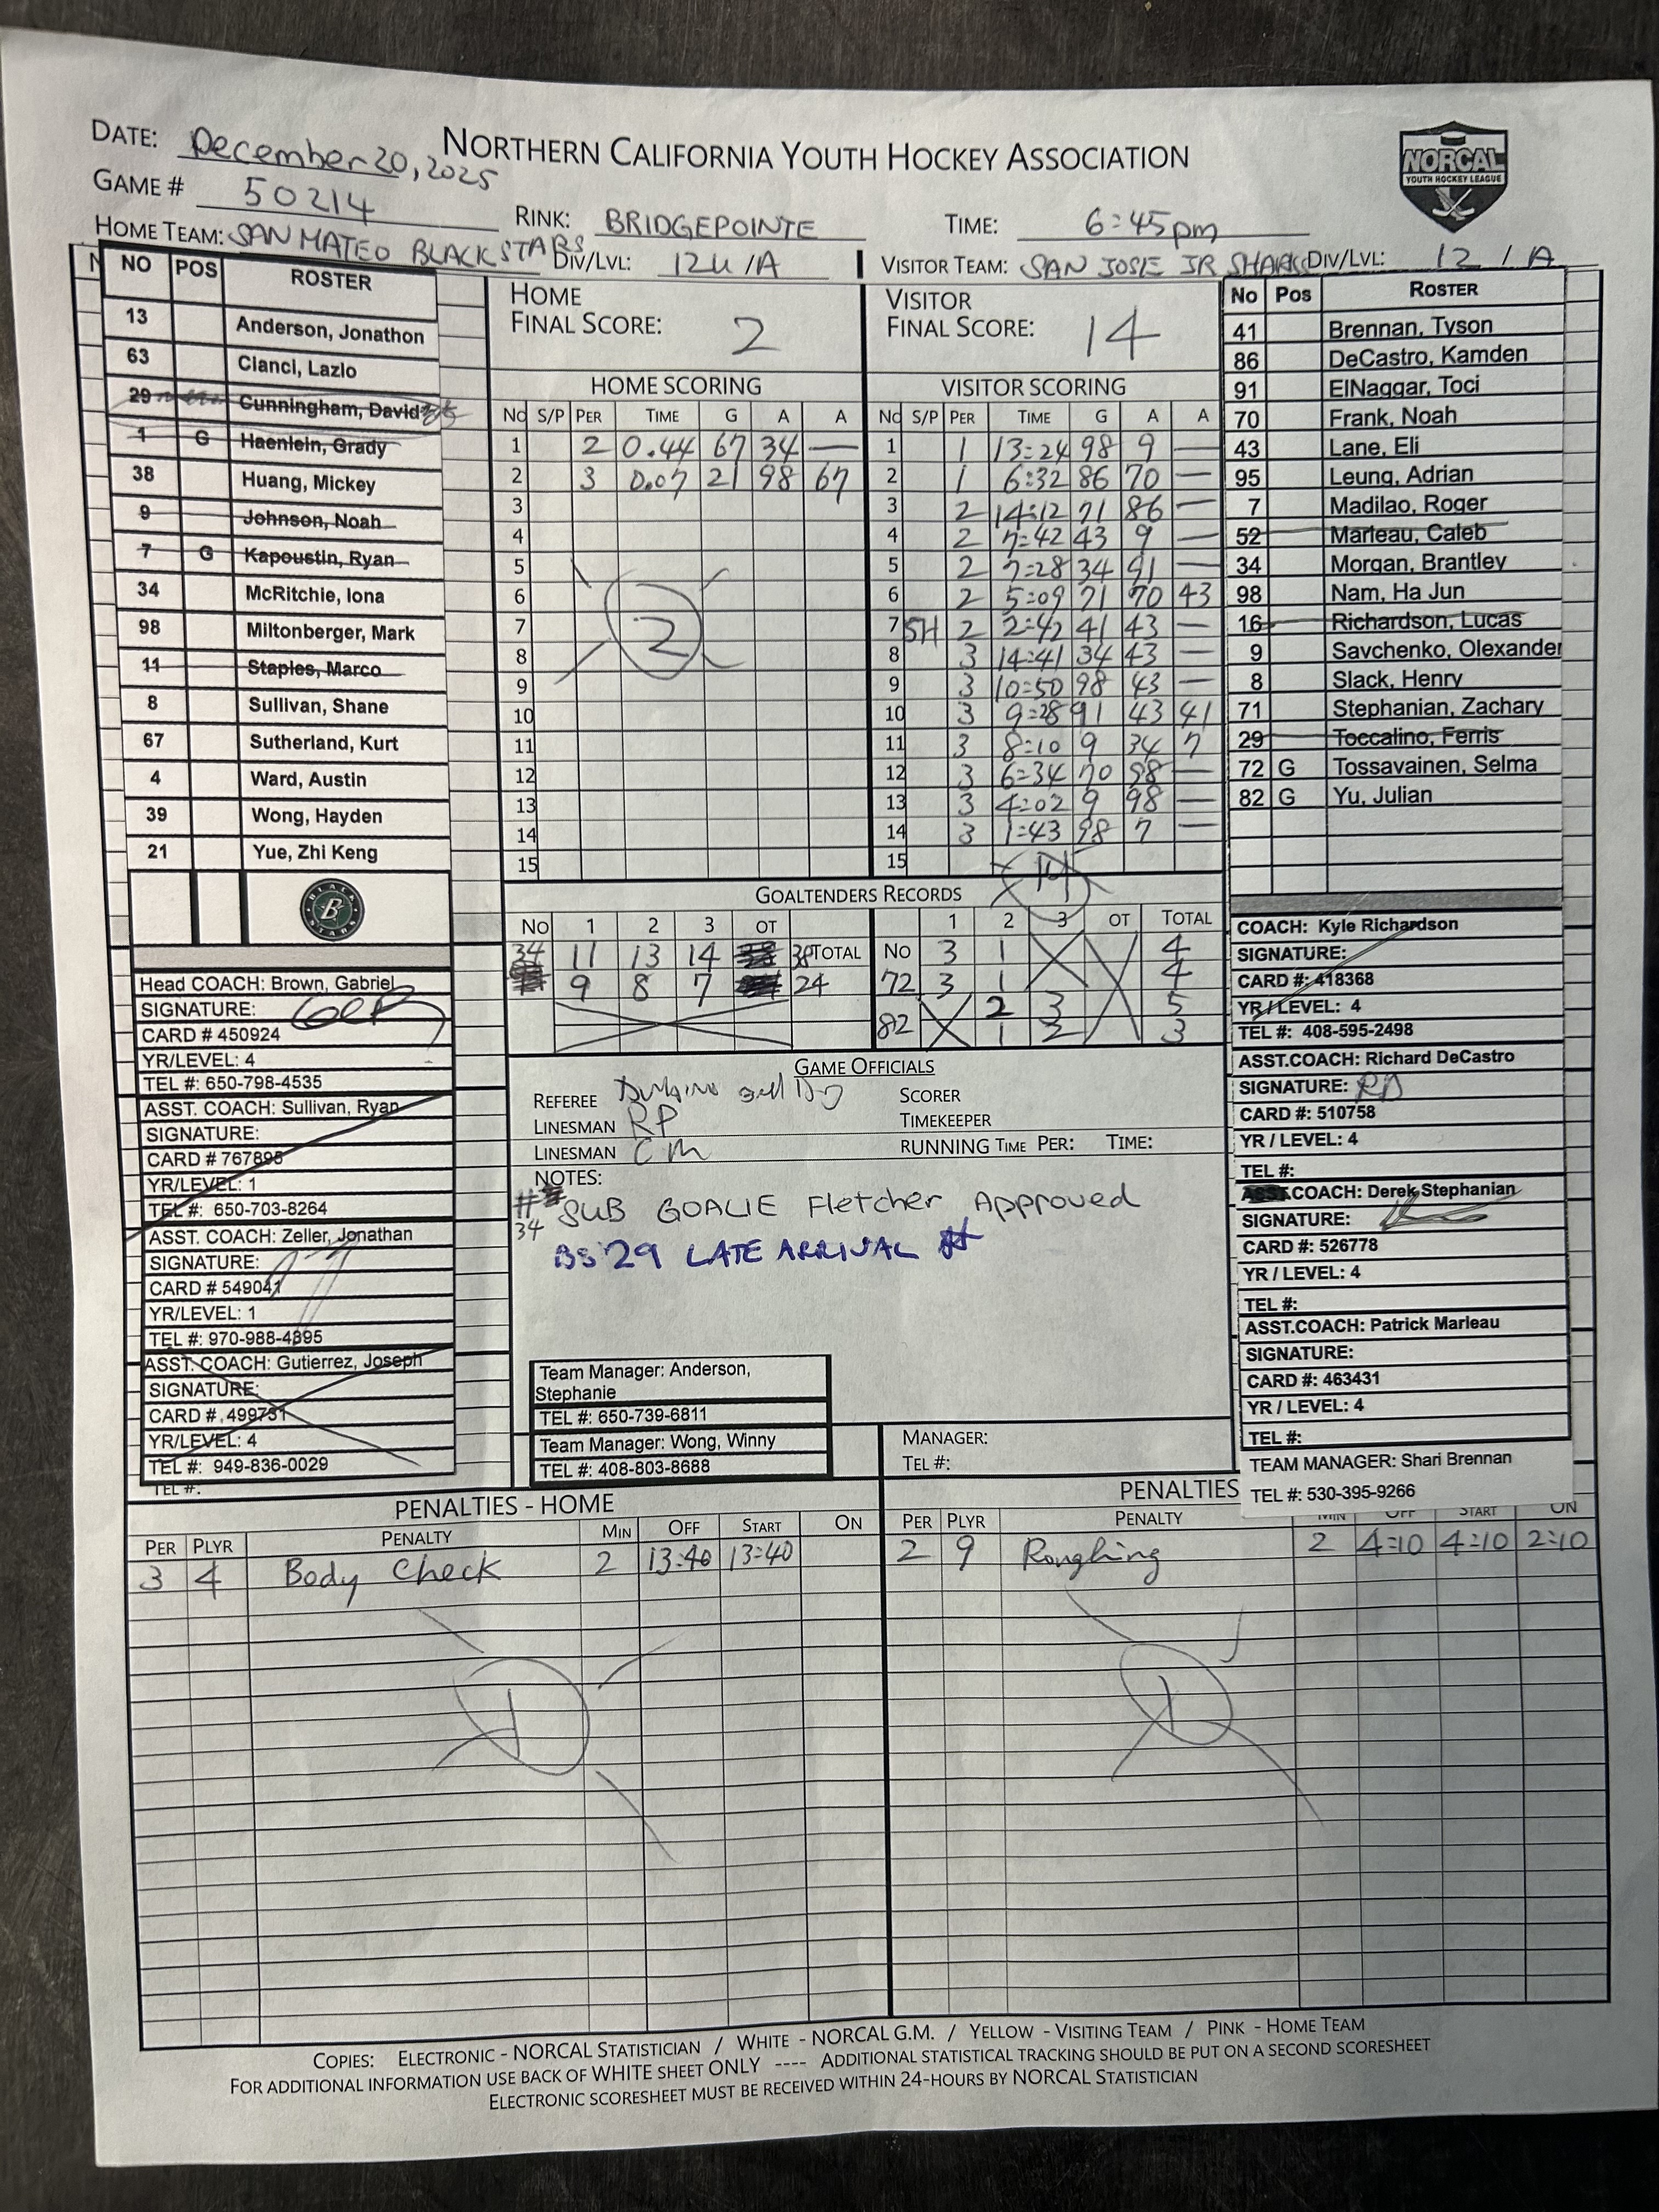 DATE: December 20, 2025
NORTHERN CALIFORNIA YOUTH HOCKEY ASSOCIATION
NORCAL
YOUTH HOCKEY LEAGUE
GAME # 50214
RINK: BRIDGEPOINTE
TIME: 6:45pm
HOME TEAM: SAN MATEO BLACK STARS
DIV/LVL: 12U /A
VISITOR TEAM: SAN JOSE JR SHARKS DIV/LVL: 12 / A
NO POS ROSTER
13 Anderson, Jonathon
63 Cianci, Lazlo
29 Cunningham, David
1 G Haenlein, Grady
38 Huang, Mickey
9 Johnson, Noah
7 G Kapoustin, Ryan
34 McRitchie, Iona
98 Miltonberger, Mark
11 Staples, Marco
8 Sullivan, Shane
67 Sutherland, Kurt
4 Ward, Austin
39 Wong, Hayden
21 Yue, Zhi Keng
BLACK STARS
B
Head COACH: Brown, Gabriel
SIGNATURE:
CARD # 450924
YR/LEVEL: 4
TEL #: 650-798-4535
ASST. COACH: Sullivan, Ryan
SIGNATURE:
CARD # 767895
YR/LEVEL: 1
TEL #: 650-703-8264
ASST. COACH: Zeller, Jonathan
SIGNATURE:
CARD # 549041
YR/LEVEL: 1
TEL #: 970-988-4395
ASST. COACH: Gutierrez, Joseph
SIGNATURE:
CARD #. 499731
YR/LEVEL: 4
TEL #: 949-836-0029
TEL #:
HOME
FINAL SCORE: 2
HOME SCORING
No S/P PER TIME G A A
1 2 0.44 67 34 —
2 3 0.07 21 98 67
3
4
5
6
7
8
9
10
11
12
13
14
15
2
VISITOR
FINAL SCORE: 14
VISITOR SCORING
No S/P PER TIME G A A
1 1 13:24 98 9 —
2 1 6:32 86 70 —
3 2 14:12 71 86 —
4 2 7:42 43 9 —
5 2 7:28 34 91 —
6 2 5:09 71 70 43
7 SH 2 2:42 41 43 —
8 3 14:41 34 43 —
9 3 10:50 98 43 —
10 3 9:28 91 43 41
11 3 8:10 9 34 7
12 3 6:34 70 98 —
13 3 4:02 9 98 —
14 3 1:43 98 7 —
15
14
GOALTENDERS RECORDS
No 1 2 3 OT
34 11 13 14 38 TOTAL
9 8 7 24
1 2 3 OT TOTAL
No 3 1 4
72 3 1 4
2 3 5
82 1 2 3
GAME OFFICIALS
REFEREE
LINESMAN RP
LINESMAN CM
SCORER
TIMEKEEPER
RUNNING TIME PER: TIME:
NOTES:
#34 SUB GOALIE Fletcher Approved
BS 29 LATE ARRIVAL
Team Manager: Anderson,
Stephanie
TEL #: 650-739-6811
Team Manager: Wong, Winny
TEL #: 408-803-8688
MANAGER:
TEL #:
No Pos ROSTER
41 Brennan, Tyson
86 DeCastro, Kamden
91 ElNaggar, Toci
70 Frank, Noah
43 Lane, Eli
95 Leung, Adrian
7 Madilao, Roger
52 Marleau, Caleb
34 Morgan, Brantley
98 Nam, Ha Jun
16 Richardson, Lucas
9 Savchenko, Olexander
8 Slack, Henry
71 Stephanian, Zachary
29 Toccalino, Ferris
72 G Tossavainen, Selma
82 G Yu, Julian
COACH: Kyle Richardson
SIGNATURE:
CARD #: 418368
YR/LEVEL: 4
TEL #: 408-595-2498
ASST.COACH: Richard DeCastro
SIGNATURE: RD
CARD #: 510758
YR / LEVEL: 4
TEL #:
COACH: Derek Stephanian
SIGNATURE:
CARD #: 526778
YR / LEVEL: 4
TEL #:
ASST.COACH: Patrick Marleau
SIGNATURE:
CARD #: 463431
YR / LEVEL: 4
TEL #:
TEAM MANAGER: Shari Brennan
TEL #: 530-395-9266
PENALTIES - HOME
PER PLYR PENALTY MIN OFF START ON
3 4 Body Check 2 13:40 13:40
1
PENALTIES
PER PLYR PENALTY MIN OFF START ON
2 9 Roughing 2 4:10 4:10 2:10
1
COPIES: ELECTRONIC - NORCAL STATISTICIAN / WHITE - NORCAL G.M. / YELLOW - VISITING TEAM / PINK - HOME TEAM
FOR ADDITIONAL INFORMATION USE BACK OF WHITE SHEET ONLY ---- ADDITIONAL STATISTICAL TRACKING SHOULD BE PUT ON A SECOND SCORESHEET
ELECTRONIC SCORESHEET MUST BE RECEIVED WITHIN 24-HOURS BY NORCAL STATISTICIAN